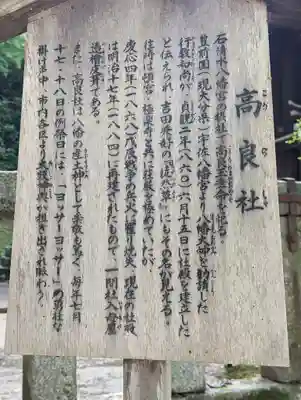 高良社
こうらしゃ
石清水八幡宮の摂社で高良玉垂命を祀る。
豊前国（現大分県）宇佐八幡宮より八幡大神を勧請した
行教和尚が、貞観二年（八六〇）六月十五日に社殿を建立した
と伝えられ、吉田兼好の『徒然草』にもその名が見える。
往時は頓宮、極楽寺と共に荘厳を極めていたが、
慶応四年（一八六八）戊辰戦争の兵火に罹り焼失、現在の社殿
は明治十七年（一八八四）に再建されたもので、一間社入母屋
造檜皮葺である。
また、高良社は八幡の産土神として崇敬も篤く、毎年七月
十七・十八日の例祭日には、「ヨッサーヨッサー」の勇壮な
掛け声の中、市内各区より太鼓神輿が担ぎ出され賑わう。